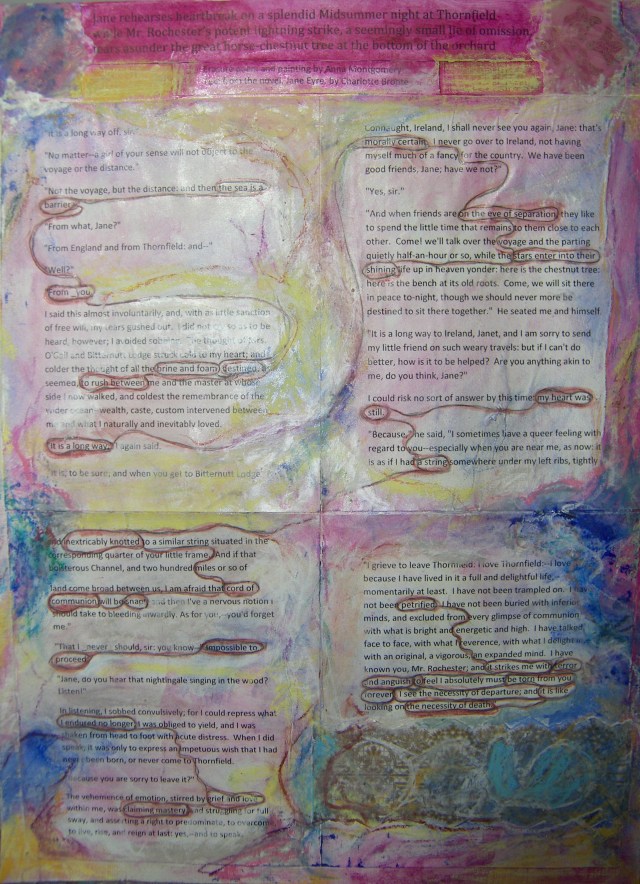 Jane rehearses heartbreak on a splendid Midsummer night at Thornfield-
while Mr. Rochester's potent lightning strike, a seemingly small lie of omission,
tears asunder the great horse-chestnut tree at the bottom of the orchard
Erasure poem and painting by Anna Montgomery
from the novel, Jane Eyre, by Charlotte Bronte
"It is a long way off, sir."
"No matter--a girl of your sense will not object to the
voyage or the distance."
"Not the voyage, but the distance: and then the sea is a
barrier
"From what, Jane?"
"From England and from Thornfield: and--"
"Well?"
"From you
I said this almost involuntarily, and, with as little sanction
of free will, my tears gushed out. I did not cry so as to be
heard, however; I avoided sobbing. The thought of Mrs.
O'Gall and Bitternutt Lodge struck cold to my heart; and
colder the thought of all the brine and foam, destined,
seemed, to rush between me and the master at whose
side I now walked, and coldest the remembrance of the
wider ocean--wealth, caste, custom intervened between
me and what I naturally and inevitably loved.
"It is a long way," I again said.
"It is, to be sure; and when you get to Bitternutt Lodge,
Connaught, Ireland, I shall never see you again, Jane: that's
morally certain. I never go over to Ireland, not having
myself much of a fancy for the country. We have been
good friends, Jane; have we not?"
"Yes, sir."
"And when friends are on the eve of separation, they like
to spend the little time that remains to them close to each
other. Come! we'll talk over the voyage and the parting
quietly half-an-hour or so, while the stars enter into their
shining life up in heaven yonder: here is the chestnut tree:
here is the bench at its old roots. Come, we will sit there
in peace to-night, though we should never more be
destined to sit there together." He seated me and himself.
"It is a long way to Ireland, Janet, and I am sorry to send
my little friend on such weary travels: but if I can't do
better, how is it to be helped? Are you anything akin to
me, do you think, Jane?"
I could risk no sort of answer by this time: my heart was
still.
"Because," he said, "I sometimes have a queer feeling with
regard to you--especially when you are near me, as now: it
is as if I had a string somewhere under my left ribs, tightly
and inextricably knotted to a similar string situated in the
corresponding quarter of your little frame. And if that
boisterous Channel, and two hundred miles or so of
land come broad between us, I am afraid that cord of
communion will be snapt; and then I've a nervous notion I
should take to bleeding inwardly. As for you,--you'd forget
me."
"That I never should, sir: you know--" impossible to
proceed.
"Jane, do you hear that nightingale singing in the wood?
Listen!"
In listening, I sobbed convulsively; for I could repress what
I endured no longer; I was obliged to yield, and I was
shaken from head to foot with acute distress. When I did
speak, it was only to express an impetuous wish that I had
never been born, or never come to Thornfield.
"Because you are sorry to leave it?"
The vehemence of emotion, stirred by grief and love
within me, was claiming mastery, and struggling for full
sway, and asserting a right to predominate, to overcome,
to live, rise, and reign at last: yes,--and to speak.
"I grieve to leave Thornfield: I love Thornfield:--I love
because I have lived in it a full and delightful life,--
momentarily at least. I have not been trampled on. I have
not been petrified. I have not been buried with inferior
minds, and excluded from every glimpse of communion
with what is bright and energetic and high. I have talked,
face to face, with what I reverence, with what I delight in,
with an original, a vigorous, an expanded mind. I have
known you, Mr. Rochester; and it strikes me with terror
and anguish to feel I absolutely must be torn from you
forever. I see the necessity of departure; and it is like
looking on the necessity of death."